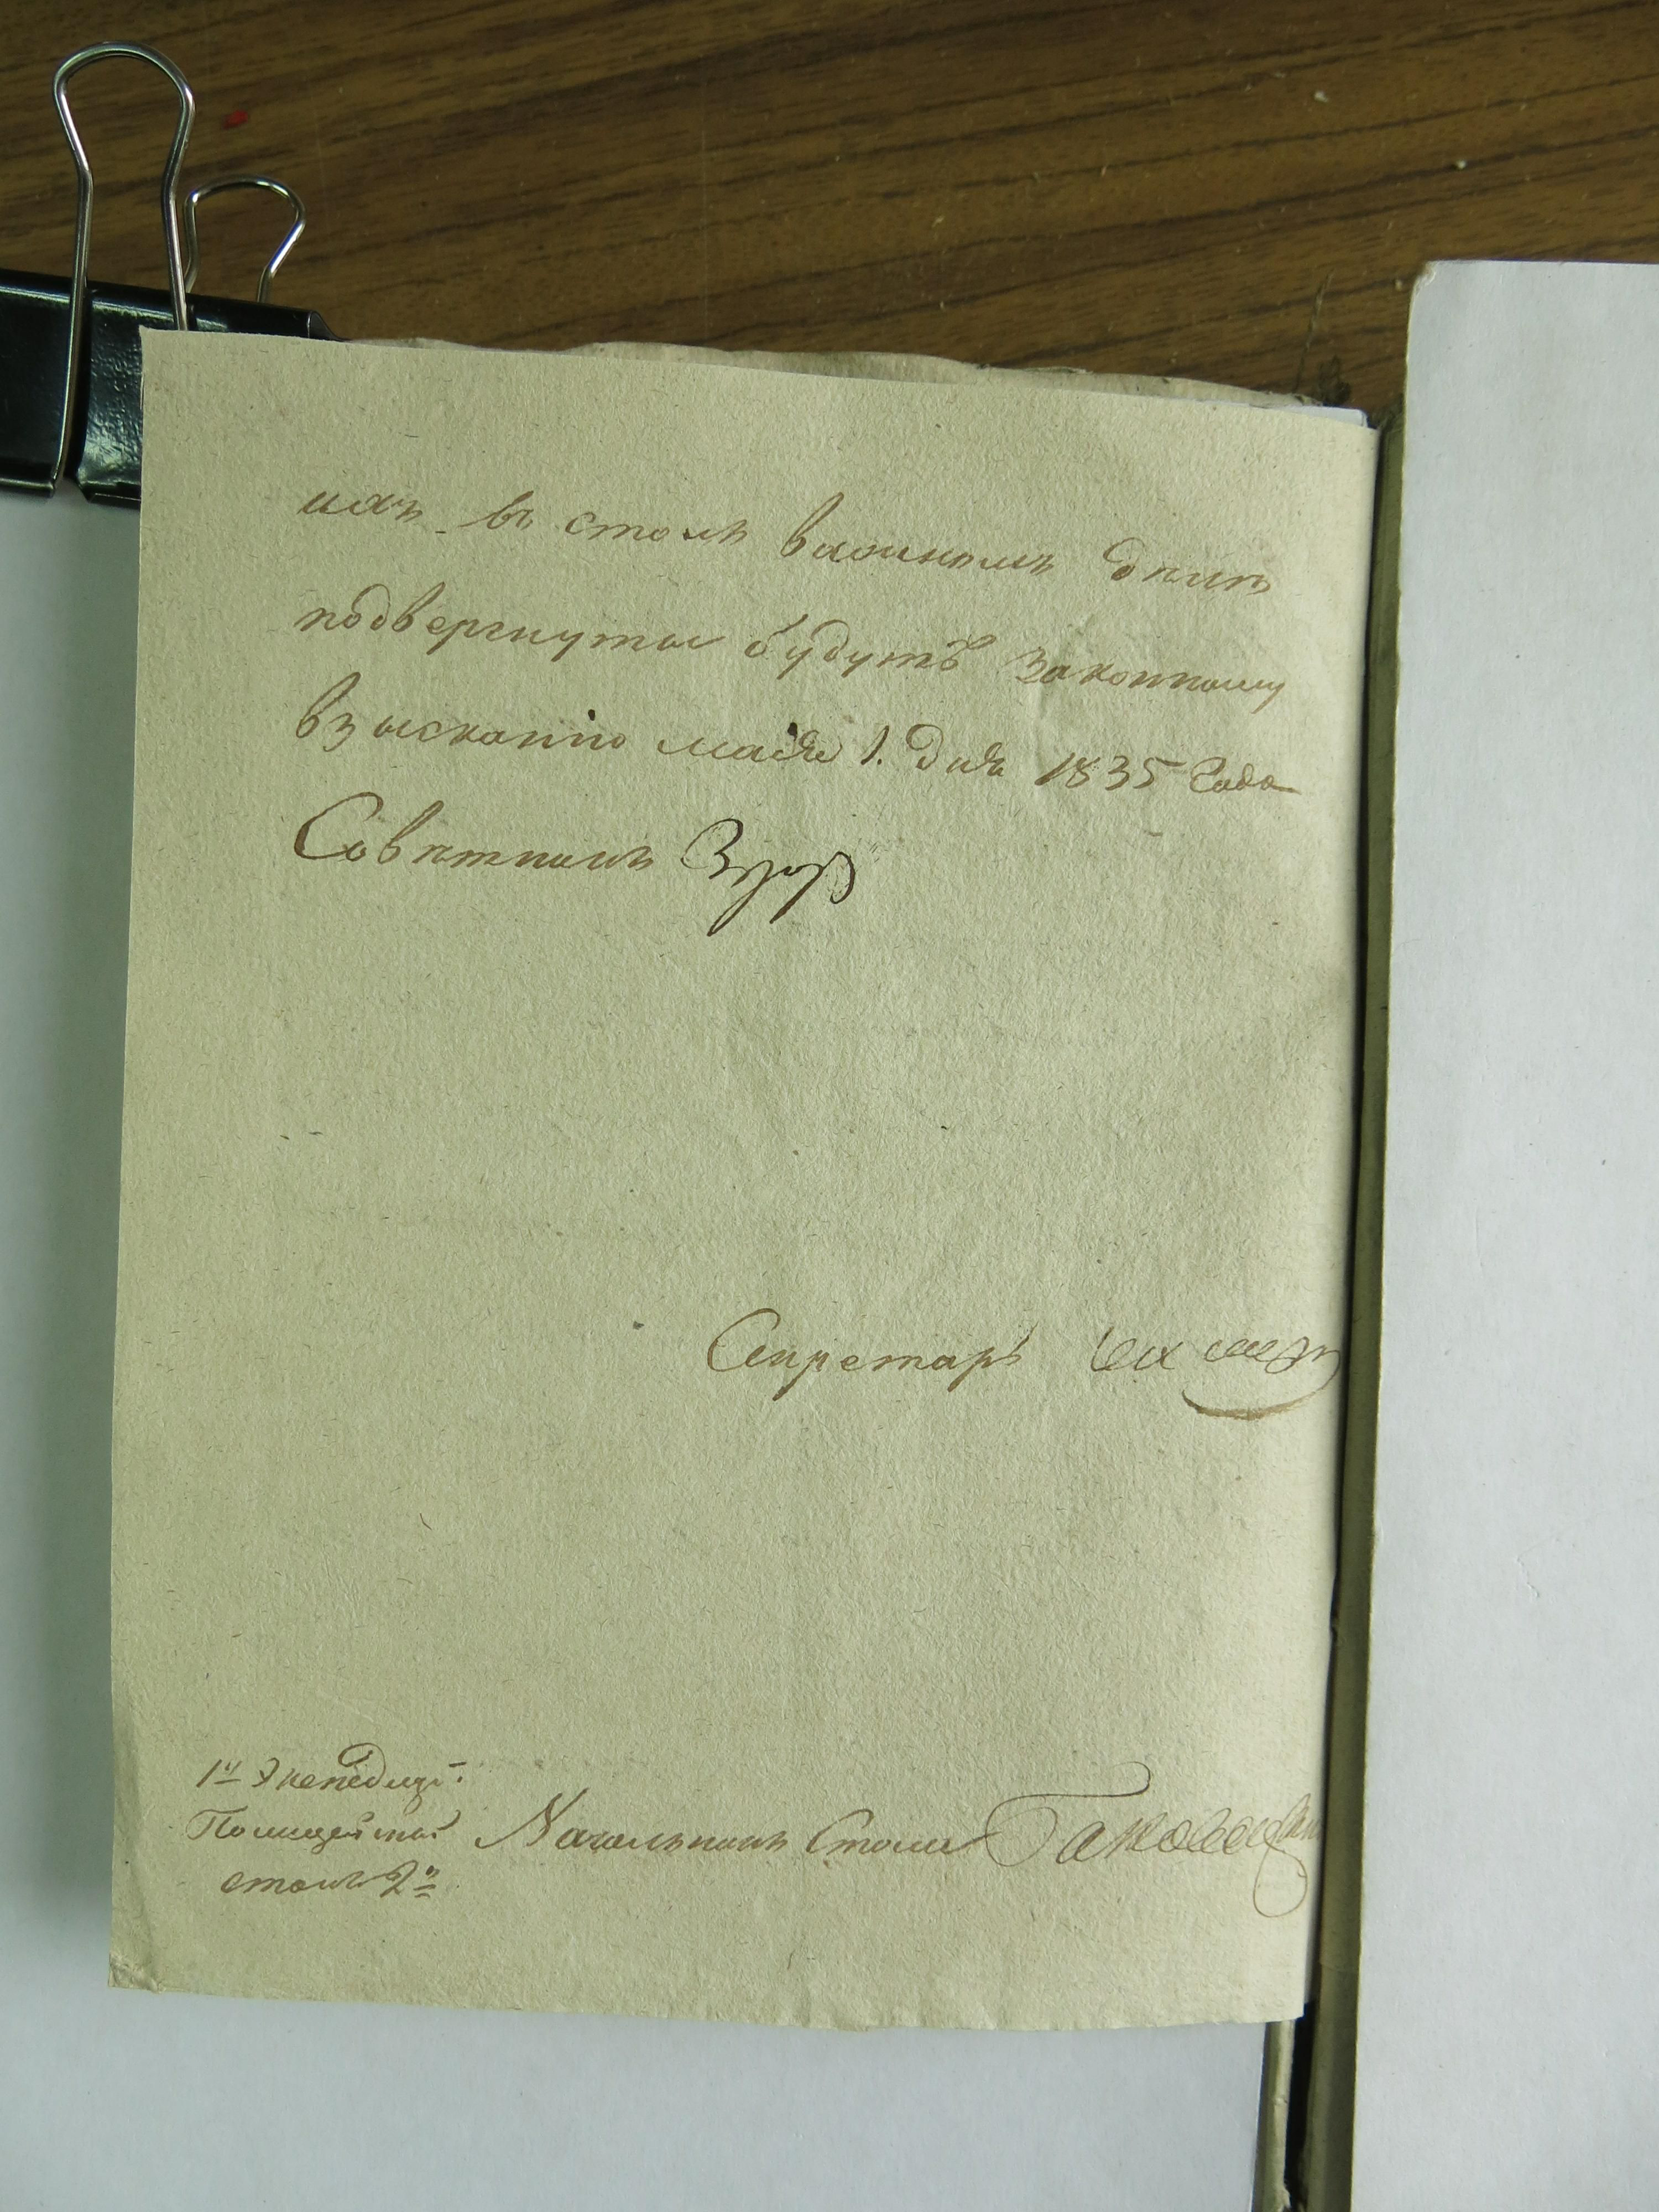 ихъ въ столь важномъ дѣлѣ
подвергнуты будутъ законному
взысканію маія 1. дня 1835 года
Совѣтникъ
Секретарь
1й Экспедиціи:
Полицейскій Начальникъ Стола
столъ 2й